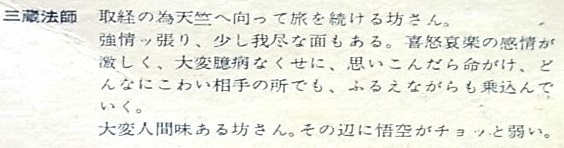 三蔵法師 取経の為天竺へ向って旅を続ける坊さん。
強情ッ張り、少し我尽な面もある。喜怒哀楽の感情が
激しく、大変臆病なくせに、思いこんだら命がけ、ど
んなにこわい相手の所でも、ふるえながらも乗込んで
いく。
大変人間味ある坊さん。その辺に悟空がチョッと弱い。